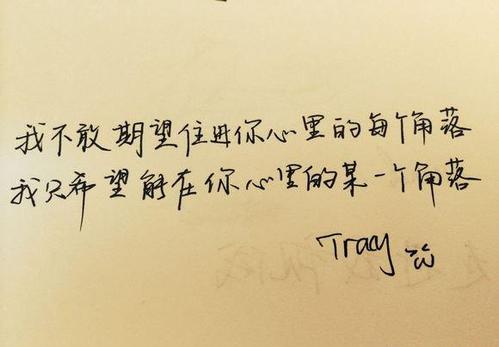 我不敢期望住进你心里的每个角落
我只希望能在你心里的某一个角落
Tracy